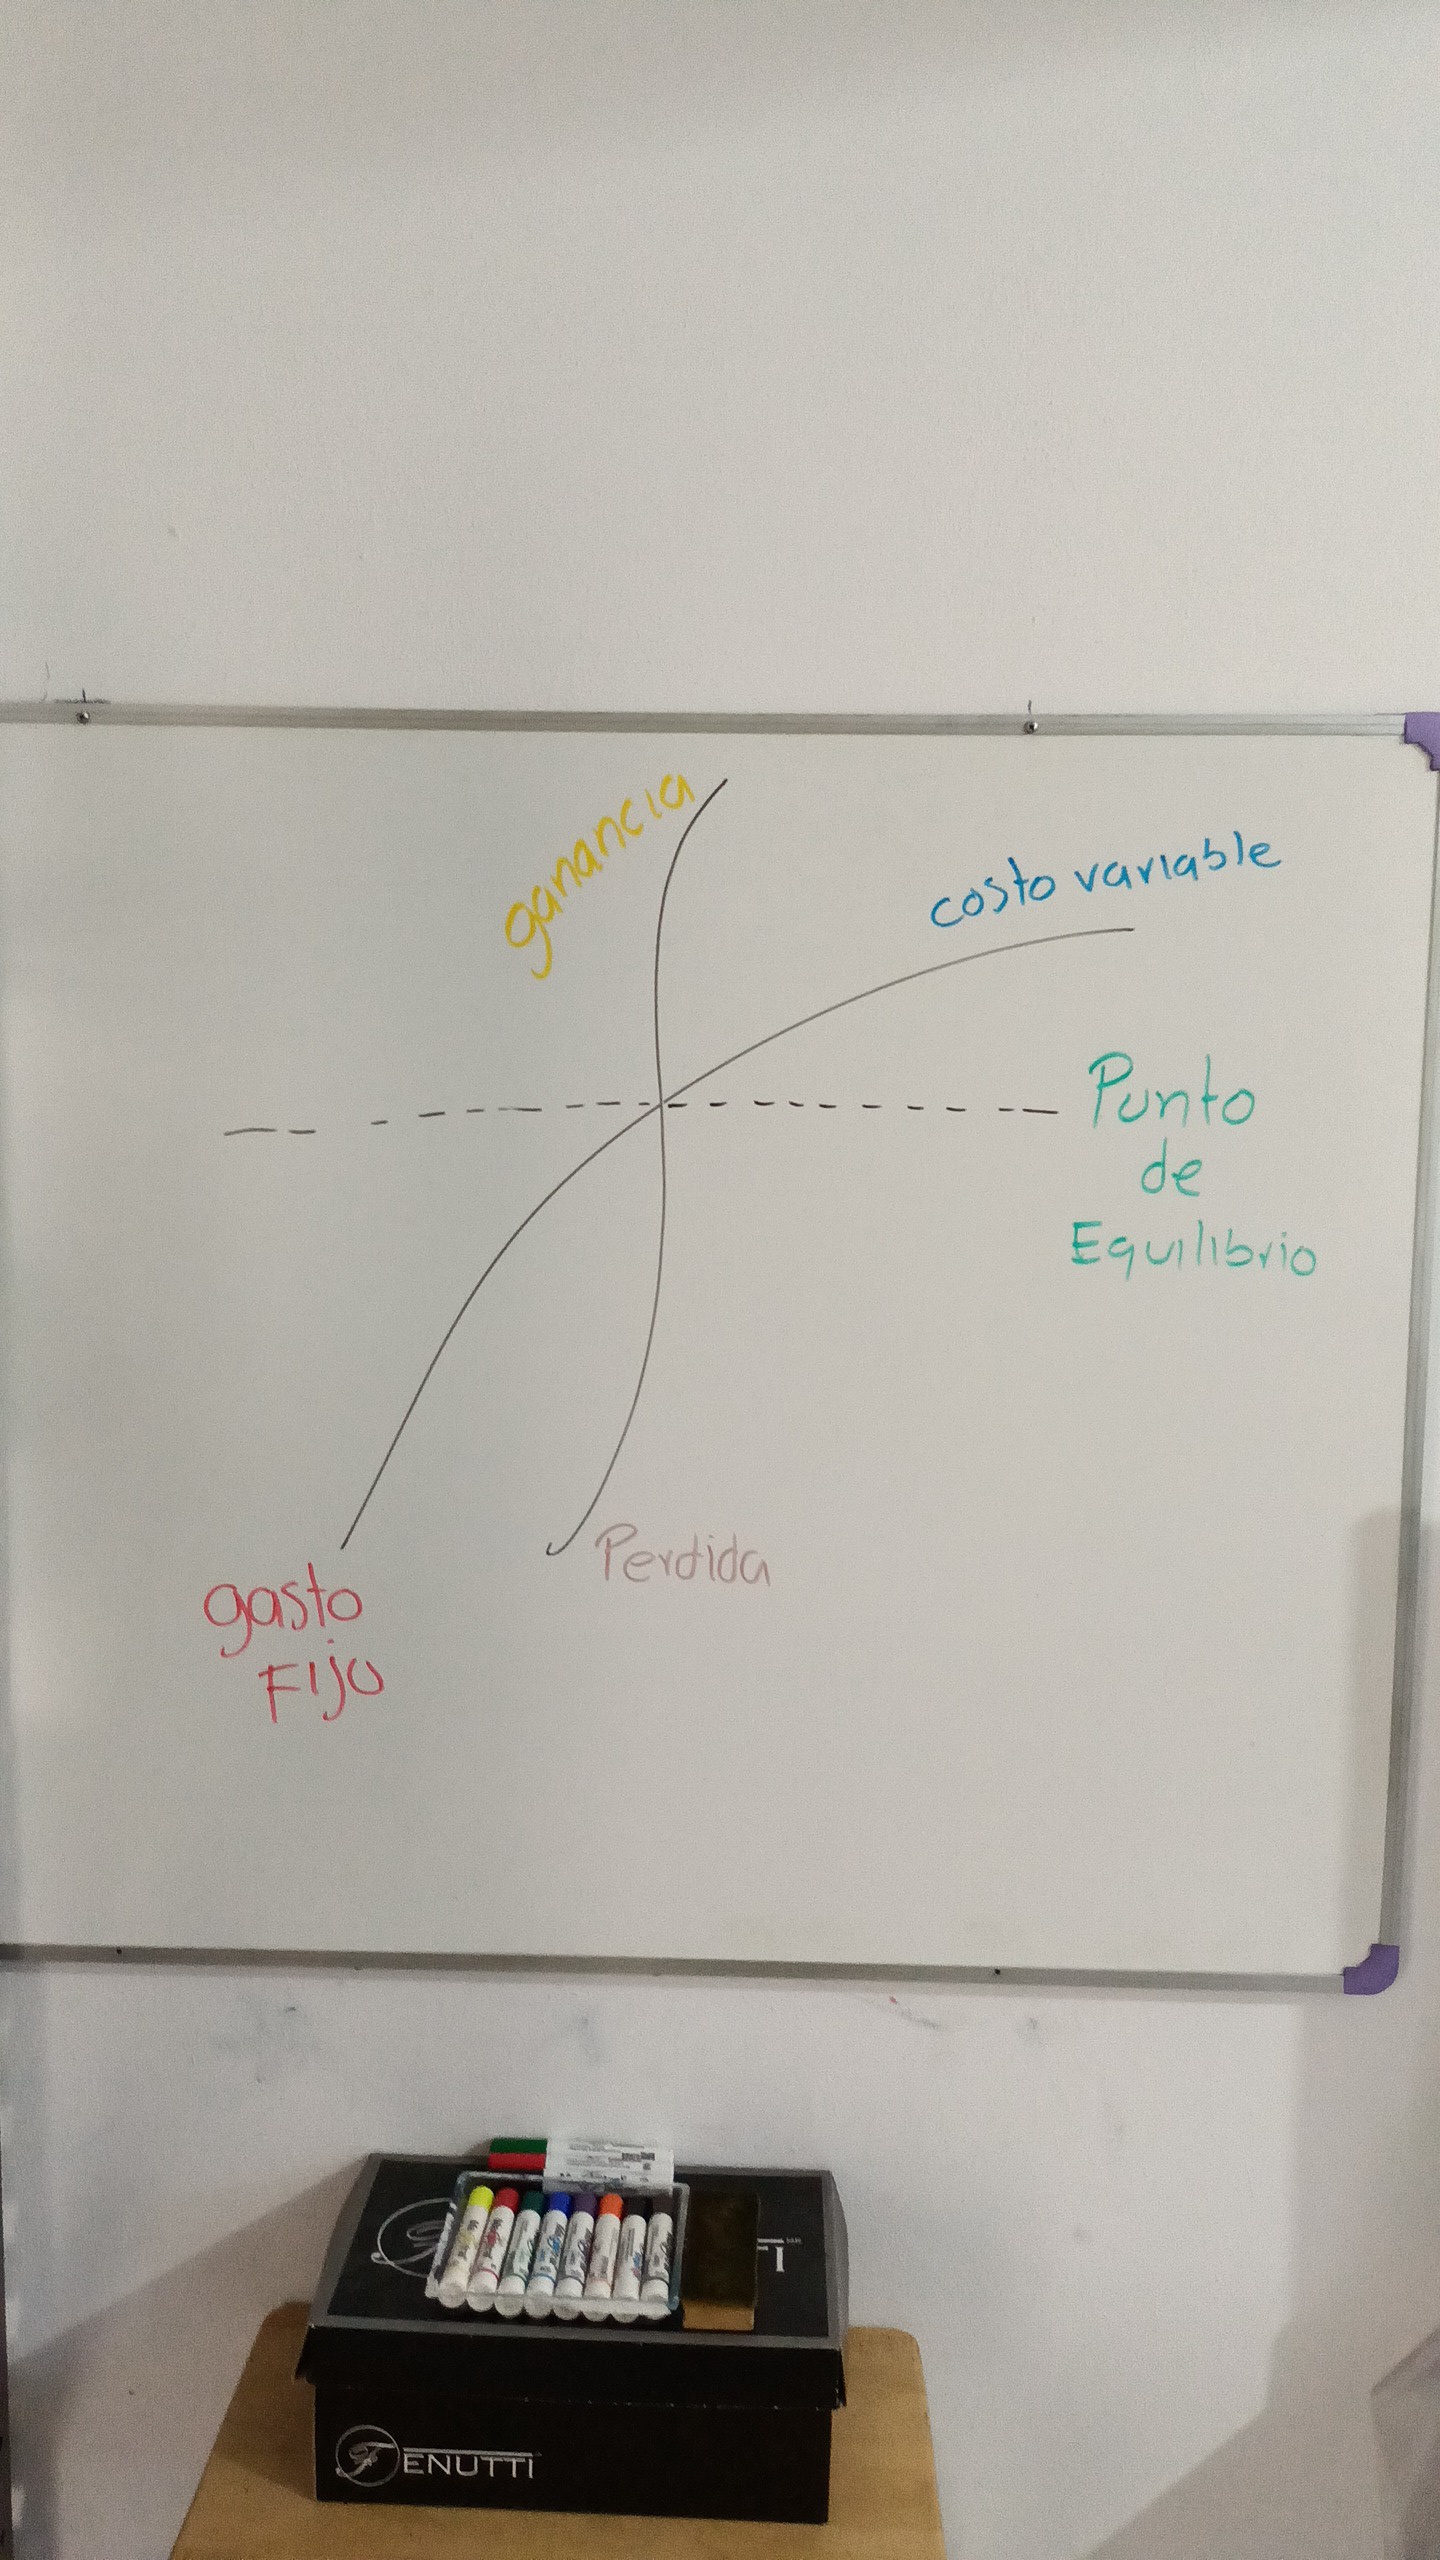 ganancia
costo variable
Punto
de
Equilibrio
Perdida
gasto
Fijo
ENUTTI